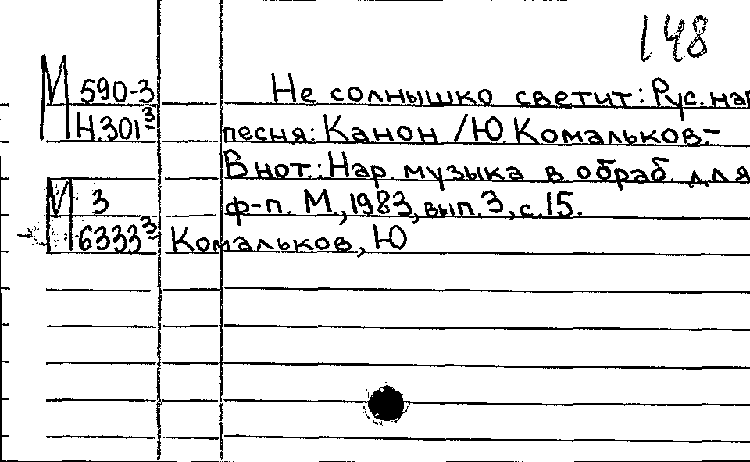 148
М 590-3 Не солнышко светит: Рус. нар
Н.301-3 песня: Канон / Ю. Комальков.-
В нот.: Нар. музыка в обраб. для
М 3 ф-п. М., 1983, вып. 3, с. 15.
6333-3 Комальков, Ю